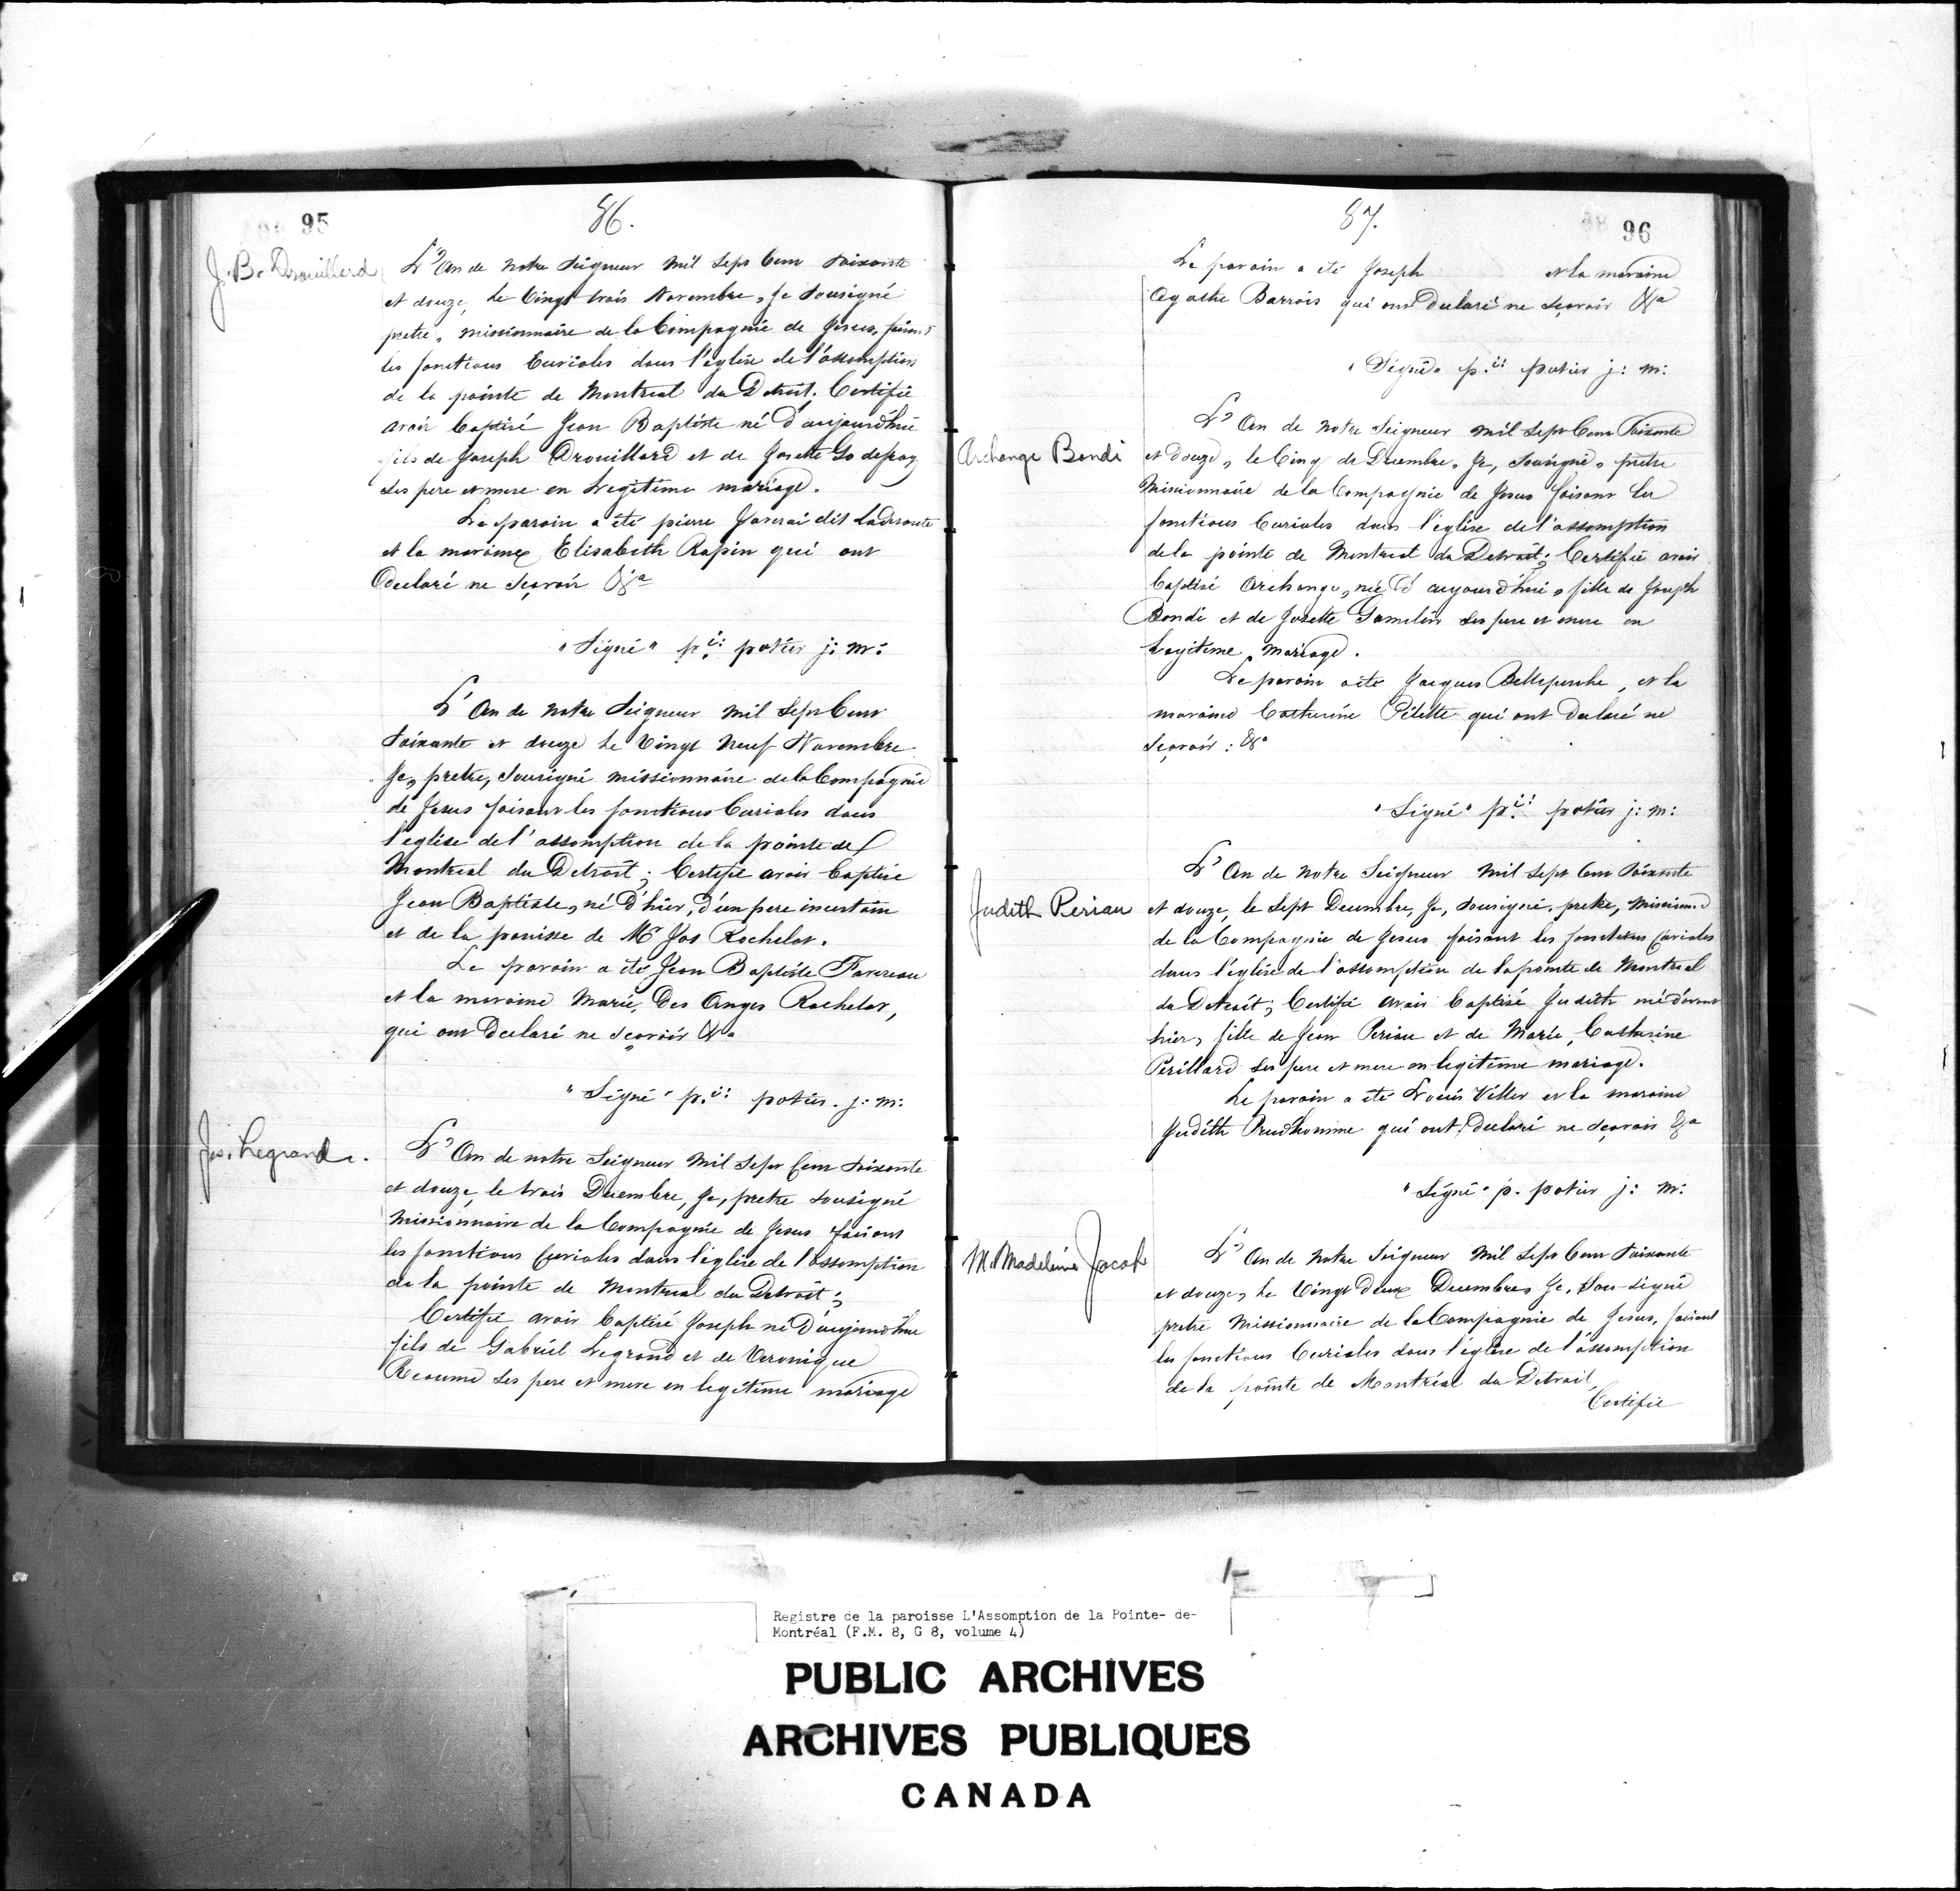 95
86.
J. B. Drouillard
L'An de notre Seigneur mil Sept Cent Soixante
et douze, le Vingt trois Novembre, Je Sousigné
pretre, missionnaire de la Compagnie de Jesus, faisant
les fonctions Curiales dans l'église de l'assomption
de la pointe de Montreal du Detroit. Certifie
avoir baptisé Jean Baptiste né d'aujourd'hui
fils de Joseph Drouillard et de Josette Godefroy
ses pere et mere en Legitime mariage.
Le parain a été pierre Javerai dit Laderoute
et la maraine Elisabeth Rapin qui ont
declaré ne sçavoir &a
"Signé" p.ii: potier j: m:
L'An de notre Seigneur mil Sept Cent
Soixante et douze le Vingt Neuf Novembre
Je, pretre, Sousigné missionnaire de la Compagnie
de Jesus faisant les fonctions Curiales dans
l'eglise de l'assomption de la pointe de
Montreal du Detroit; Certifie avoir baptisé
Jean Baptiste, né d'hier, d'un pere incertain
et de la panisse de Mr Jos Rochelot.
Le parain a été Jean Baptiste Favreau
et la maraine Marie, Des Anges Rochelot,
qui ont Declaré ne sçavoir &a
"Signé" p.ii: potier. j: m:
Jos. Legrand.
L'An de notre Seigneur Mil Sept Cent Soixante
et douze, le trois Decembre, Je, pretre sousigné
Missionnaire de la Compagnie de Jesus faisant
les fonctions Curiales dans l'église de l'assomption
de la pointe de Montreal du Detroit;
Certifie avoir baptisé Joseph né D'aujourdhui
fils de Gabriel Legrand et de Veronique
Reaume ses pere et mere en legitime mariage
87.
96
Le parain a été Joseph et la maraine
Agathe Barrois qui ont Declaré ne sçavoir &a
"Signé" p.ii: potier j: m:
Archange Bondi
L'An de notre Seigneur mil Sept Cent Soixante
et douze, le Cinq de Decembre, Je, Sousigné, pretre
Missionnaire de la Compagnie de Jesus faisant les
fonctions Curiales dans l'église de l'assomption
de la pointe de Montreal du Detroit; Certifie avoir
baptisé Archange, née d'aujourd'hui, fille de Joseph
Bondi et de Josette Gamelin ses pere et mere en
Legitime mariage.
Le parain a été Jacques Belleperche, et la
maraine Catherine Pilette qui ont declaré ne
sçavoir: &a
"Signé" p.ii: potier j: m:
Judith Periau
L'An de notre Seigneur mil Sept Cent Soixante
et douze, le Sept Decembre, Je, sousigné. pretre, Missionn.e
de la Compagnie de Jesus faisant les fonctions Curiales
dans l'église de l'assomption de la pointe de Montreal
du Detroit; Certifie avoir baptisé Judith né d'avant
hier, fille de Jean Periau et de Marie, Catherine
Perillard ses pere et mere en legitime mariage.
Le parain a été Louis Viller et la maraine
Judith Prudhomme qui ont declaré ne sçavoir &a
"Signé" p. potier j: m:
M. Madeleine Jacob
L'An de notre Seigneur Mil Sept Cent Soixante
et douze, le Vingt deux Decembre, Je, Sou-signé
pretre Missionnaire de la Compagnie de Jesus, faisant
les fonctions Curiales dans l'église de l'assomption
de la pointe de Montréal du Detroit,
Certifie
Registre de la paroisse L'Assomption de la Pointe- de-
Montréal (F.M. 8, G 8, volume 4)
PUBLIC ARCHIVES
ARCHIVES PUBLIQUES
CANADA